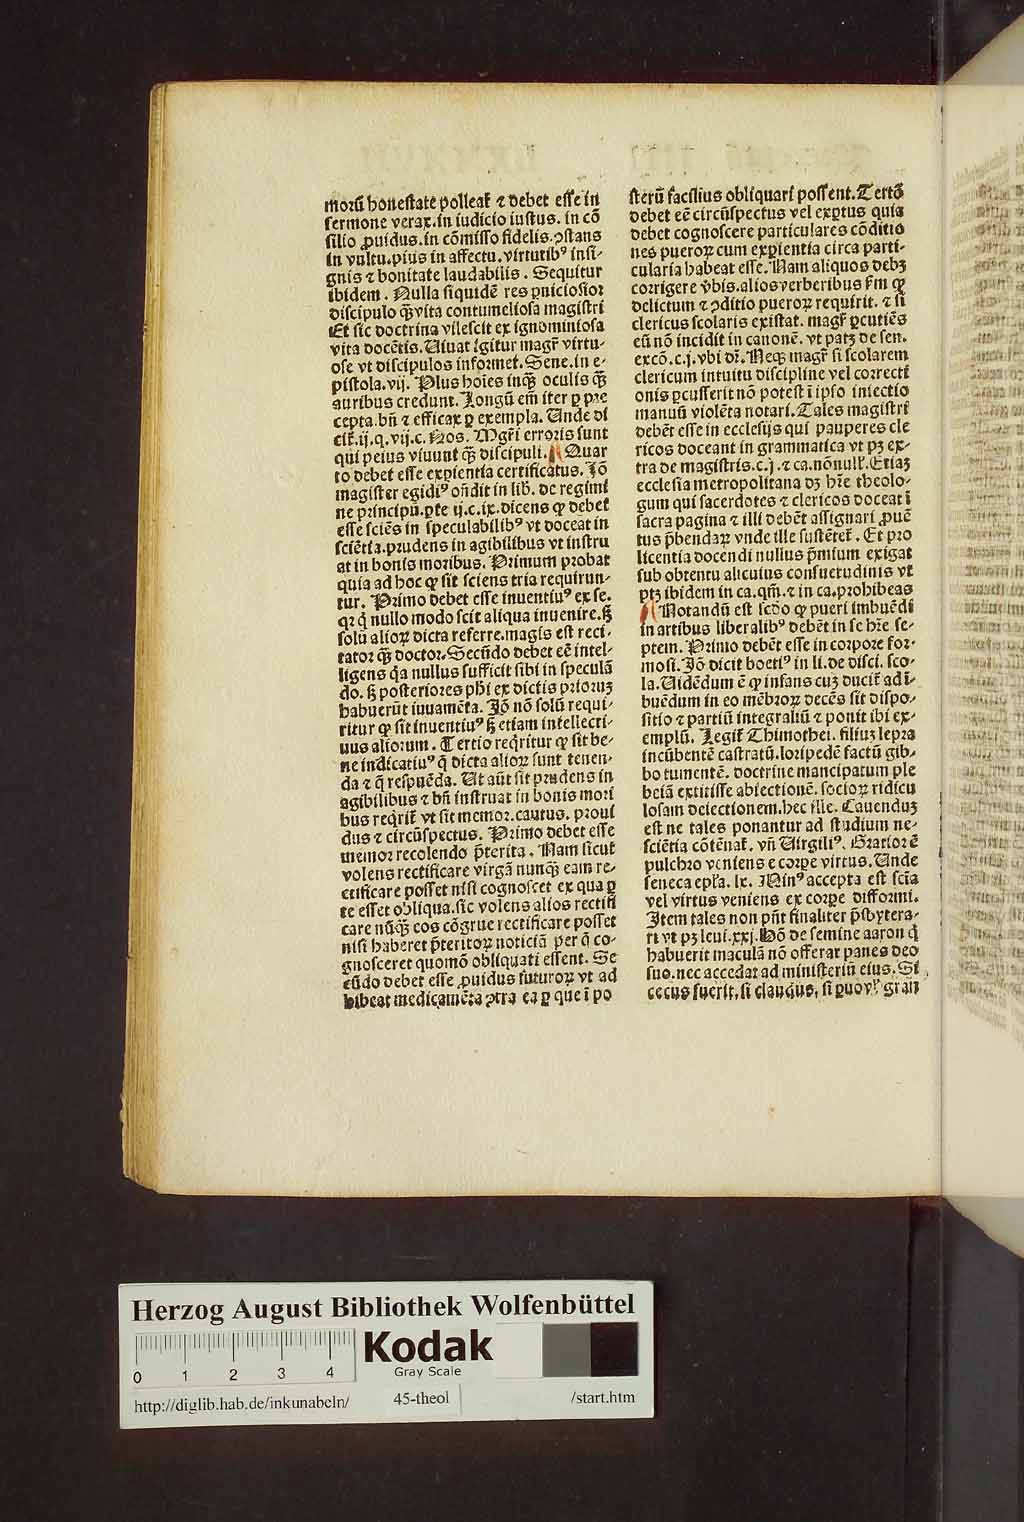 morū honestate polleat̄ ⁊ debet esse in
sermone verax. in iudicio iustus. in cō
silio ꝓuidus. in cōmisso fidelis. ꝯstans
in vultu. pius in affectu. virtutibꝰ insi-
gnis ⁊ bonitate laudabilis. Sequitur
ibidem. Nulla siquidē res ꝑniciosior
discipulo qꝫ̄ vita contumeliosa magistri
Et sic doctrina vilescit ex ignominiosa
vita docētis. Uiuat igitur magr̄ virtu-
ose vt discipulos informet. Sene. in e-
pistola. vij. Plus hoīes inqꝫ̄ oculis qꝫ̄
auribus credunt. Longū em̄ iter ꝑ pre
cepta. bn̄ ⁊ efficax ꝑ exempla. Unde di
cit̄. ij. q. vij. c. Nos. Mgr̄i erroris sunt
qui peius viuunt qꝫ̄ discipuli. Quar
to debet esse exꝑientia certificatus. Iō
magister egidiꝰ on̄dit in lib. de regimi
ne principū. ꝑte ij. c. ix. dicens ꝙ debet
esse sciēs in speculabilibꝰ vt doceat in
sciētia. prudens in agibilibus vt instru
at in bonis moribus. Primum probat
quia ad hoc ꝙ sit sciens tria requirun-
tur. Primo debet esse inuentiuꝰ ex se.
qꝛ q̇ nullo modo scit aliqua inuenire. sꝫ
solū alioꝝ dicta referre. magis est reci-
tator qꝫ̄ doctor. Secūdo debet eē intel-
ligens q̇a nullus sufficit sibi in speculā
do. sꝫ posteriores phī ex dictis prioruꝫ
habuerūt iuuamēta. Iō nō solū requi-
ritur ꝙ sit inuentiuꝰ sꝫ etiam intellecti-
uus aliorum. Tertio req̇ritur ꝙ sit be-
ne iudicatiuꝰ q̄ dicta alioꝝ sunt tenen-
da ⁊ q̄ respuēda. Ut aūt sit prudens in
agibilibus ⁊ bn̄ instruat in bonis mori
bus req̇rit̄ vt sit memor. cautus. proui
dus ⁊ circūspectus. Primo debet esse
memor recolendo p̄terita. Nam sicut
volens rectificare virgā nunqꝫ̄ eam re-
ctificare posset nisi cognoscet ex qua ꝑ
te esset obliqua. sic volens alios rectifi
care nūqꝫ̄ eos cōgrue rectificare posset
nisi haberet p̄teritoꝝ noticiā per q̄ co-
gnosceret quomō obliquati essent. Se
cūdo debet esse ꝓuidus futuroꝝ vt ad
hibeat medicamēta ꝯtra ea ꝑ que ī po
sterū facilius obliquari possent. Tertō
debet eē circūspectus vel exꝑtus quia
debet cognoscere particulares cōditio
nes pueroꝝ cum exꝑientia circa parti-
cularia habeat esse. Nam aliquos debꝫ
corrigere v̄bis. alios verberibus s̄m ꝙ
delictum ⁊ ꝯditio pueroꝝ requirit. ⁊ si
clericus scolaris existat. magr̄ ꝑcutiēs
eū nō incidit in canonē. vt patꝫ de sen.
excō. c. j. vbi dr̄. Neqꝫ magr̄ si scolarem
clericum intuitu discipline vel correcti
onis ꝑcusserit nō potest ī ipso iniectio
manuū violēta notari. Tales magistri
debēt esse in ecclesijs qui pauperes cle
ricos doceant in grammatica vt pꝫ ex-
tra de magistris. c. j. ⁊ ca. nōnull̄. Etiaꝫ
ecclesia metropolitana dꝫ hr̄e theolo-
gum qui sacerdotes ⁊ clericos doceat ī
sacra pagina ⁊ illi debēt assignari ꝓuē
tus p̄bendaꝝ vnde ille sustētet̄. Et pro
licentia docendi nullus p̄mium exigat
sub obtentu alicuius consuetudinis vt
ptꝫ ibidem in ca. qm̄. ⁊ in ca. prohibeas
Notandū est scd̄o ꝙ pueri imbuēdi
in artibus liberalibꝰ debēt in se hr̄e se-
ptem. Primo debēt esse in corpore for-
mosi. Iō dicit boetiꝰ in li. de disci. sco-
la. Uidēdum ē ꝙ infans cuꝫ ducit̄ ad ī-
buēdum in eo mēbroꝝ decēs sit dispo-
sitio ⁊ partiū integraliū ⁊ ponit ibi ex-
emplū. Legit̄ Thimothei. filius lepra
incūbentē castratū. loripedē factū gib-
bo tumentē. doctrine mancipatum ple
beiā extitisse abiectionē. socioꝝ ridicu
losam deiectionem. hec ille. Cauenduꝫ
est ne tales ponantur ad studium ne-
sciētia cōtēnat̄. vn̄ Uirgiliꝰ. Gratior ē
pulchro veniens e corꝑe virtus. Unde
seneca epl̄a. lx. Minꝰ accepta est scīa
vel virtus veniens ex corꝑe difformi.
Item tales non pn̄t finaliter p̄sbytera-
ri vt pꝫ leui. xxj. Hō de semine aaron q̇
habuerit maculā nō offerat panes deo
suo. nec accedat ad ministeriū eius. Si
cecus fuerit, si claudus, si ꝑuo vl̄ grān
Herzog August Bibliothek Wolfenbüttel
Kodak
Gray Scale
0 1 2 3 4
http://diglib.hab.de/inkunabeln/ 45-theol /start.htm